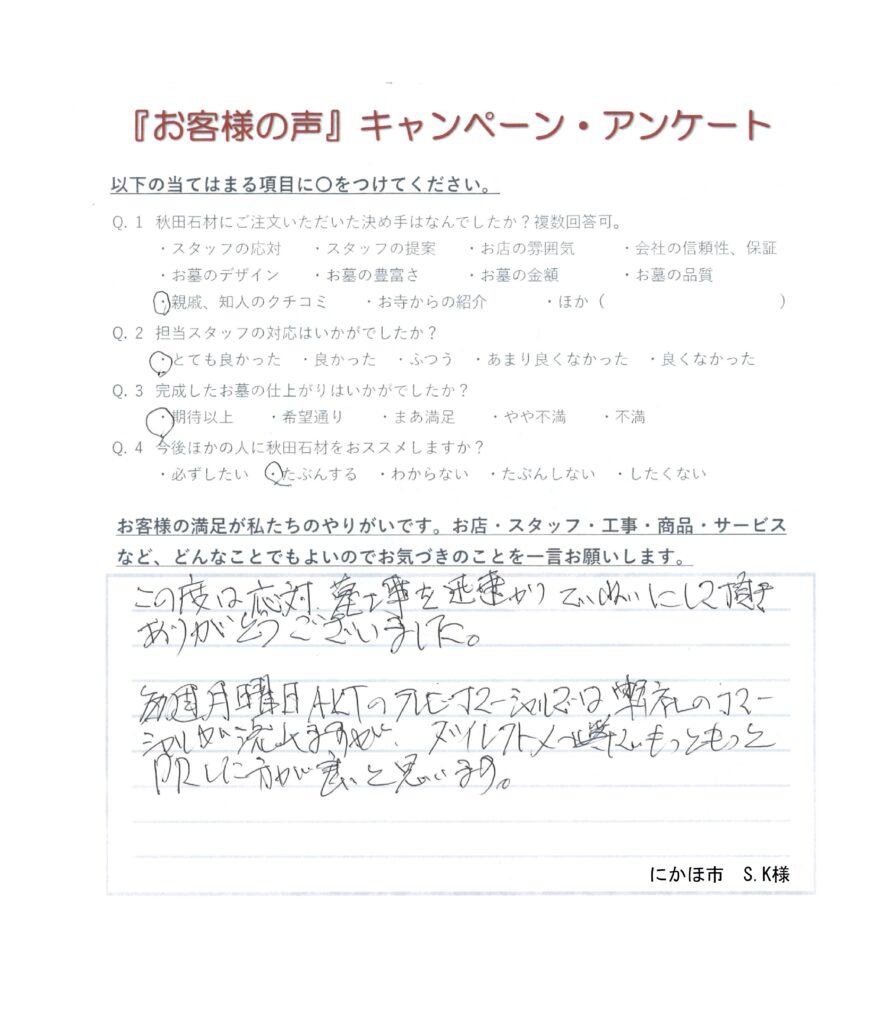 『お客様の声』キャンペーン・アンケート
以下の当てはまる項目に〇をつけてください。
Q. 1 秋田石材にご注文いただいた決め手はなんでしたか？複数回答可。
・スタッフの応対 ・スタッフの提案 ・お店の雰囲気 ・会社の信頼性、保証
・お墓のデザイン ・お墓の豊富さ ・お墓の金額 ・お墓の品質
・親戚、知人のクチコミ ・お寺からの紹介 ・ほか（ ）
Q. 2 担当スタッフの対応はいかがでしたか？
・とても良かった ・良かった ・ふつう ・あまり良くなかった ・良くなかった
Q. 3 完成したお墓の仕上がりはいかがでしたか？
・期待以上 ・希望通り ・まあ満足 ・やや不満 ・不満
Q. 4 今後ほかの人に秋田石材をおススメしますか？
・必ずしたい ・たぶんする ・わからない ・たぶんしない ・したくない
お客様の満足が私たちのやりがいです。お店・スタッフ・工事・商品・サービス
など、どんなことでもよいのでお気づきのことを一言お願いします。
この度は応対、墓工事を迅速かつていねいにして頂き
ありがとうございました。
毎週月曜日AKTのテレビコマーシャルでは御社のコマー
シャルが流れますが、ダイレクトメール等でもっともっと
PRした方が良いと思います。
にかほ市 S.K様